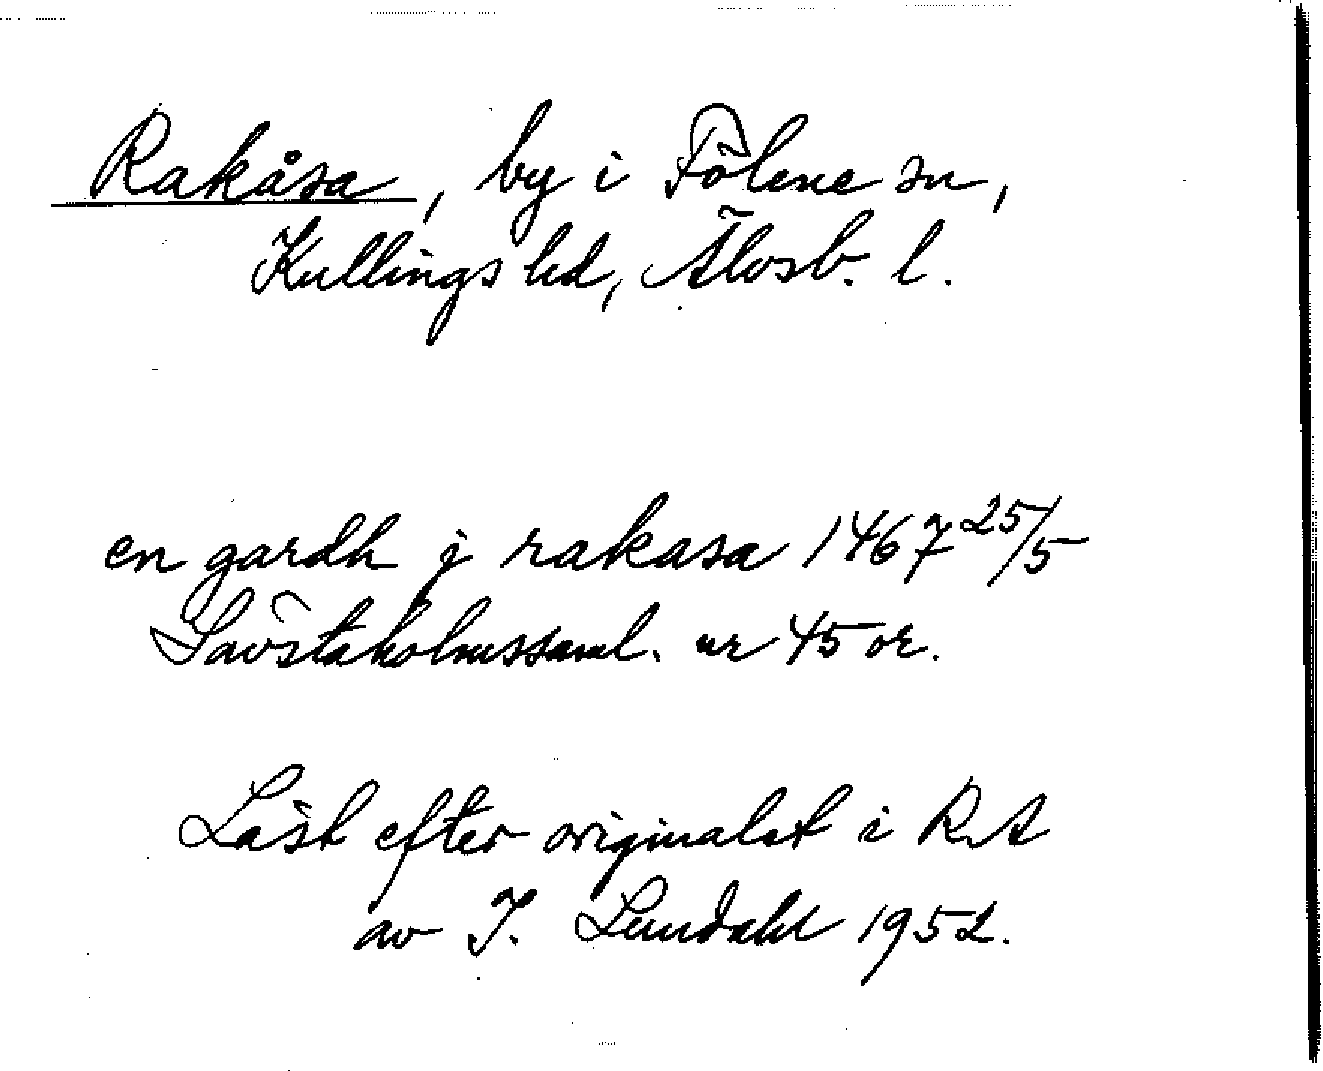 Rakåsa, by i Fölene sn,
Kullings hd, Älvsb. l.
en gardh j rakasa 1467 25/5
Sävstaholmssaml. nr 45 or.
Läst efter originalet i RA
av I. Lundahl 1952.